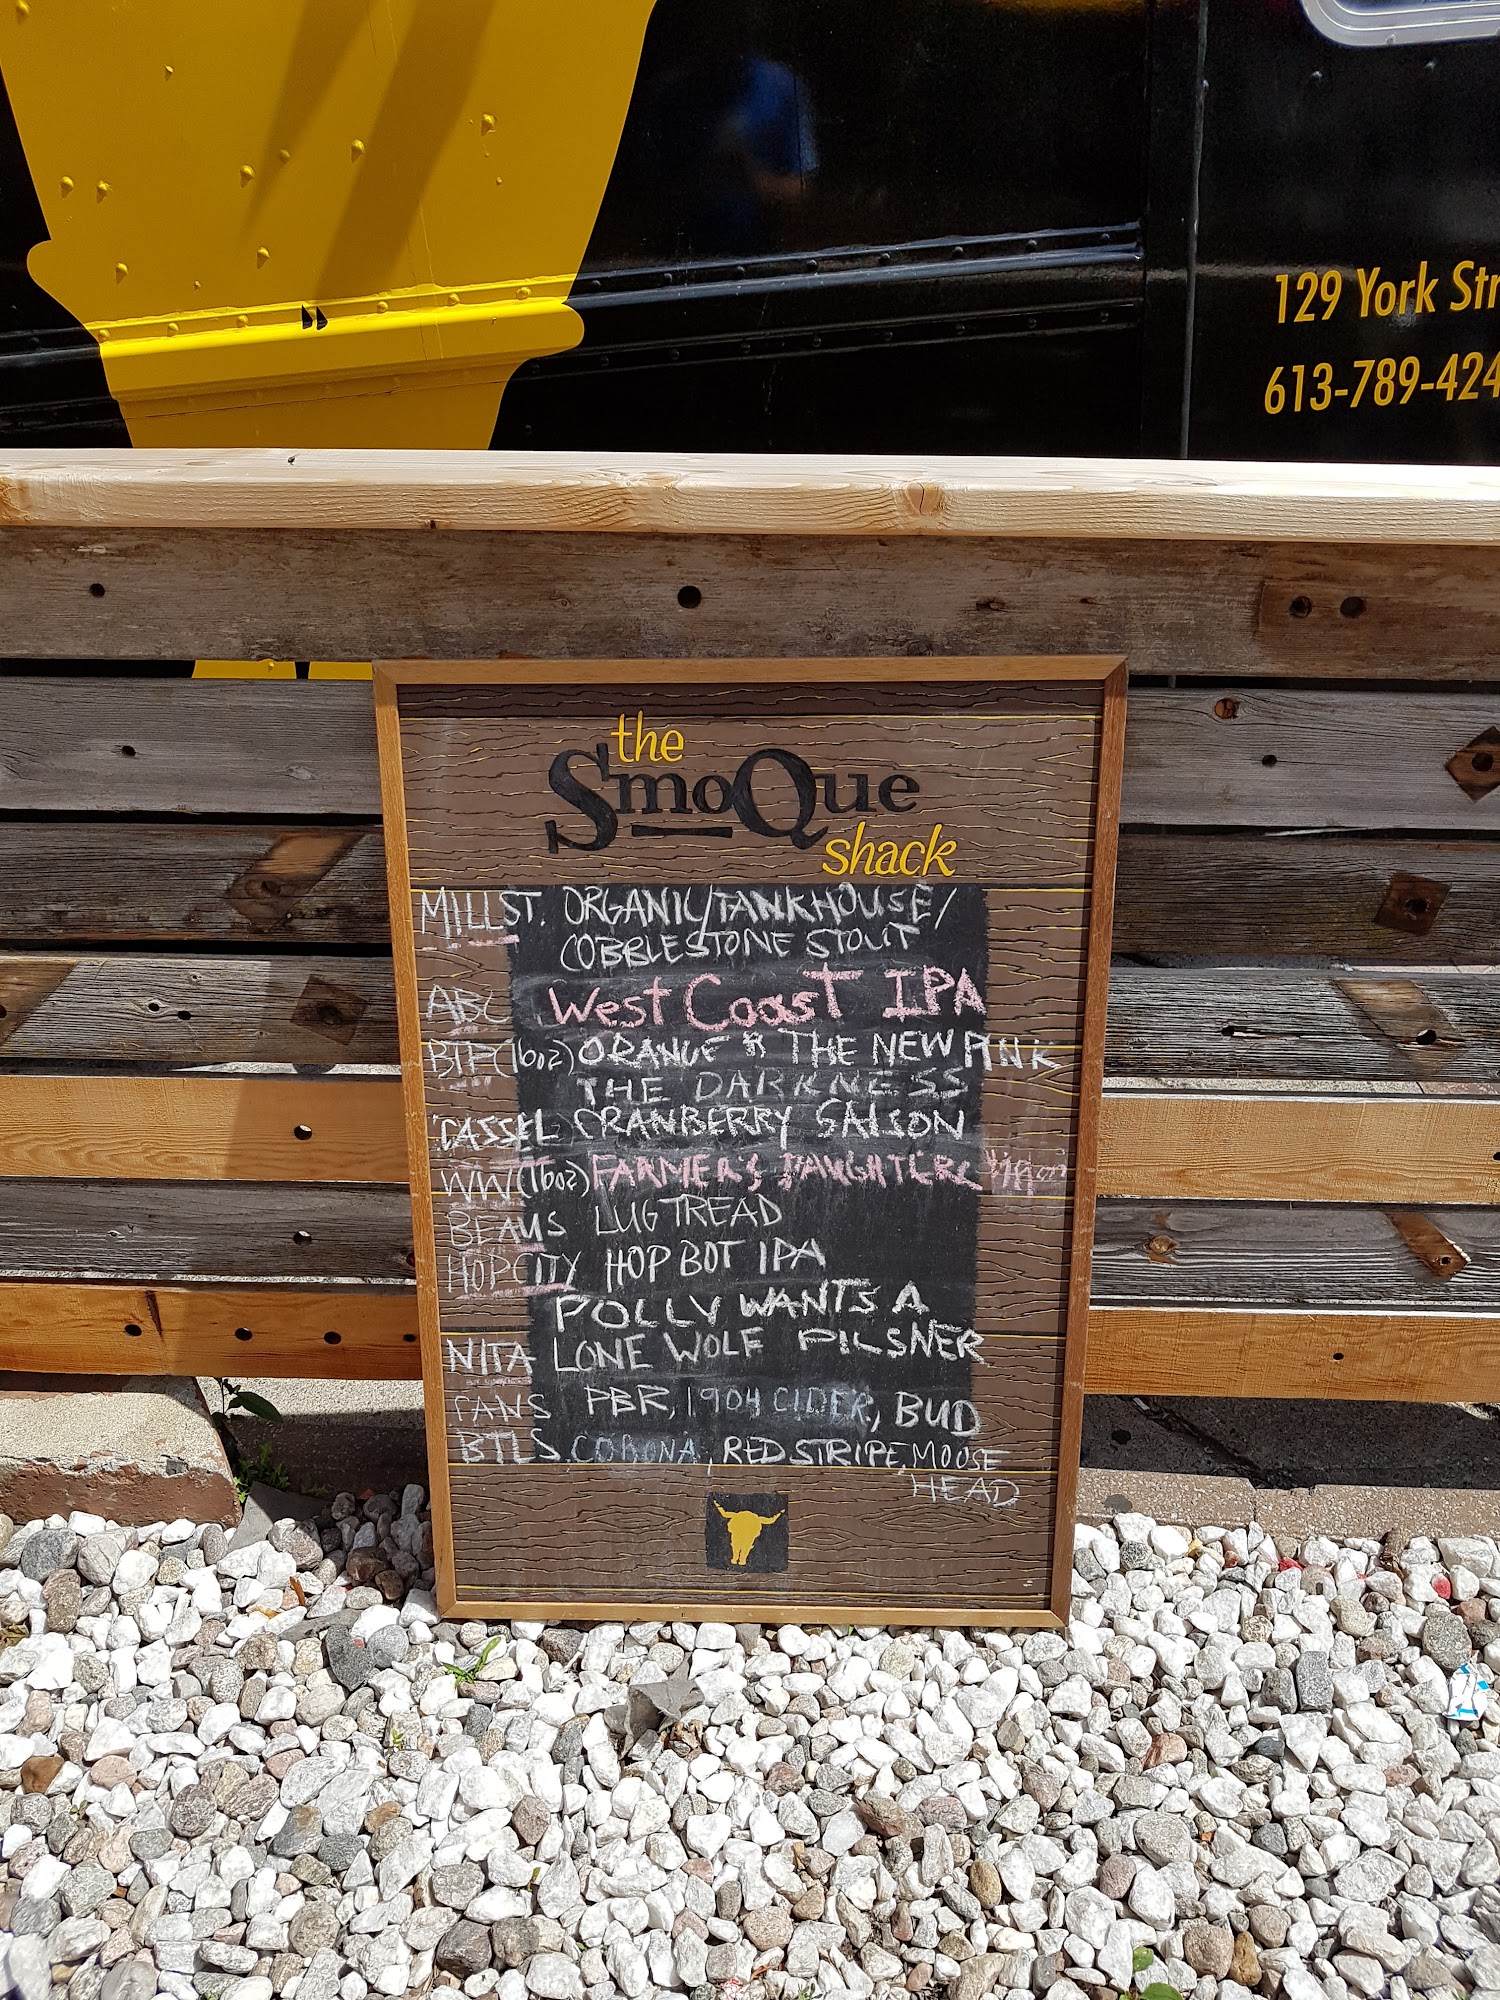 129 York Str
613-789-424
the
SmoQue
shack
MILL ST. ORGANIC/TANKHOUSE/
COBBLESTONE STOUT
ABC West Coast IPA
BTP(16oz) ORANGE THE NEW PINK
THE DARKNESS
CASSEL CRANBERRY SAISON
WW(16oz) FARMER'S DAUGHTER
BEAUS LUG TREAD
HOPCITY HOP BOT IPA
POLLY WANTS A
NITA LONE WOLF PILSNER
CANS PBR, 1904 CIDER, BUD
BTLS CORONA, RED STRIPE, MOOSE
HEAD